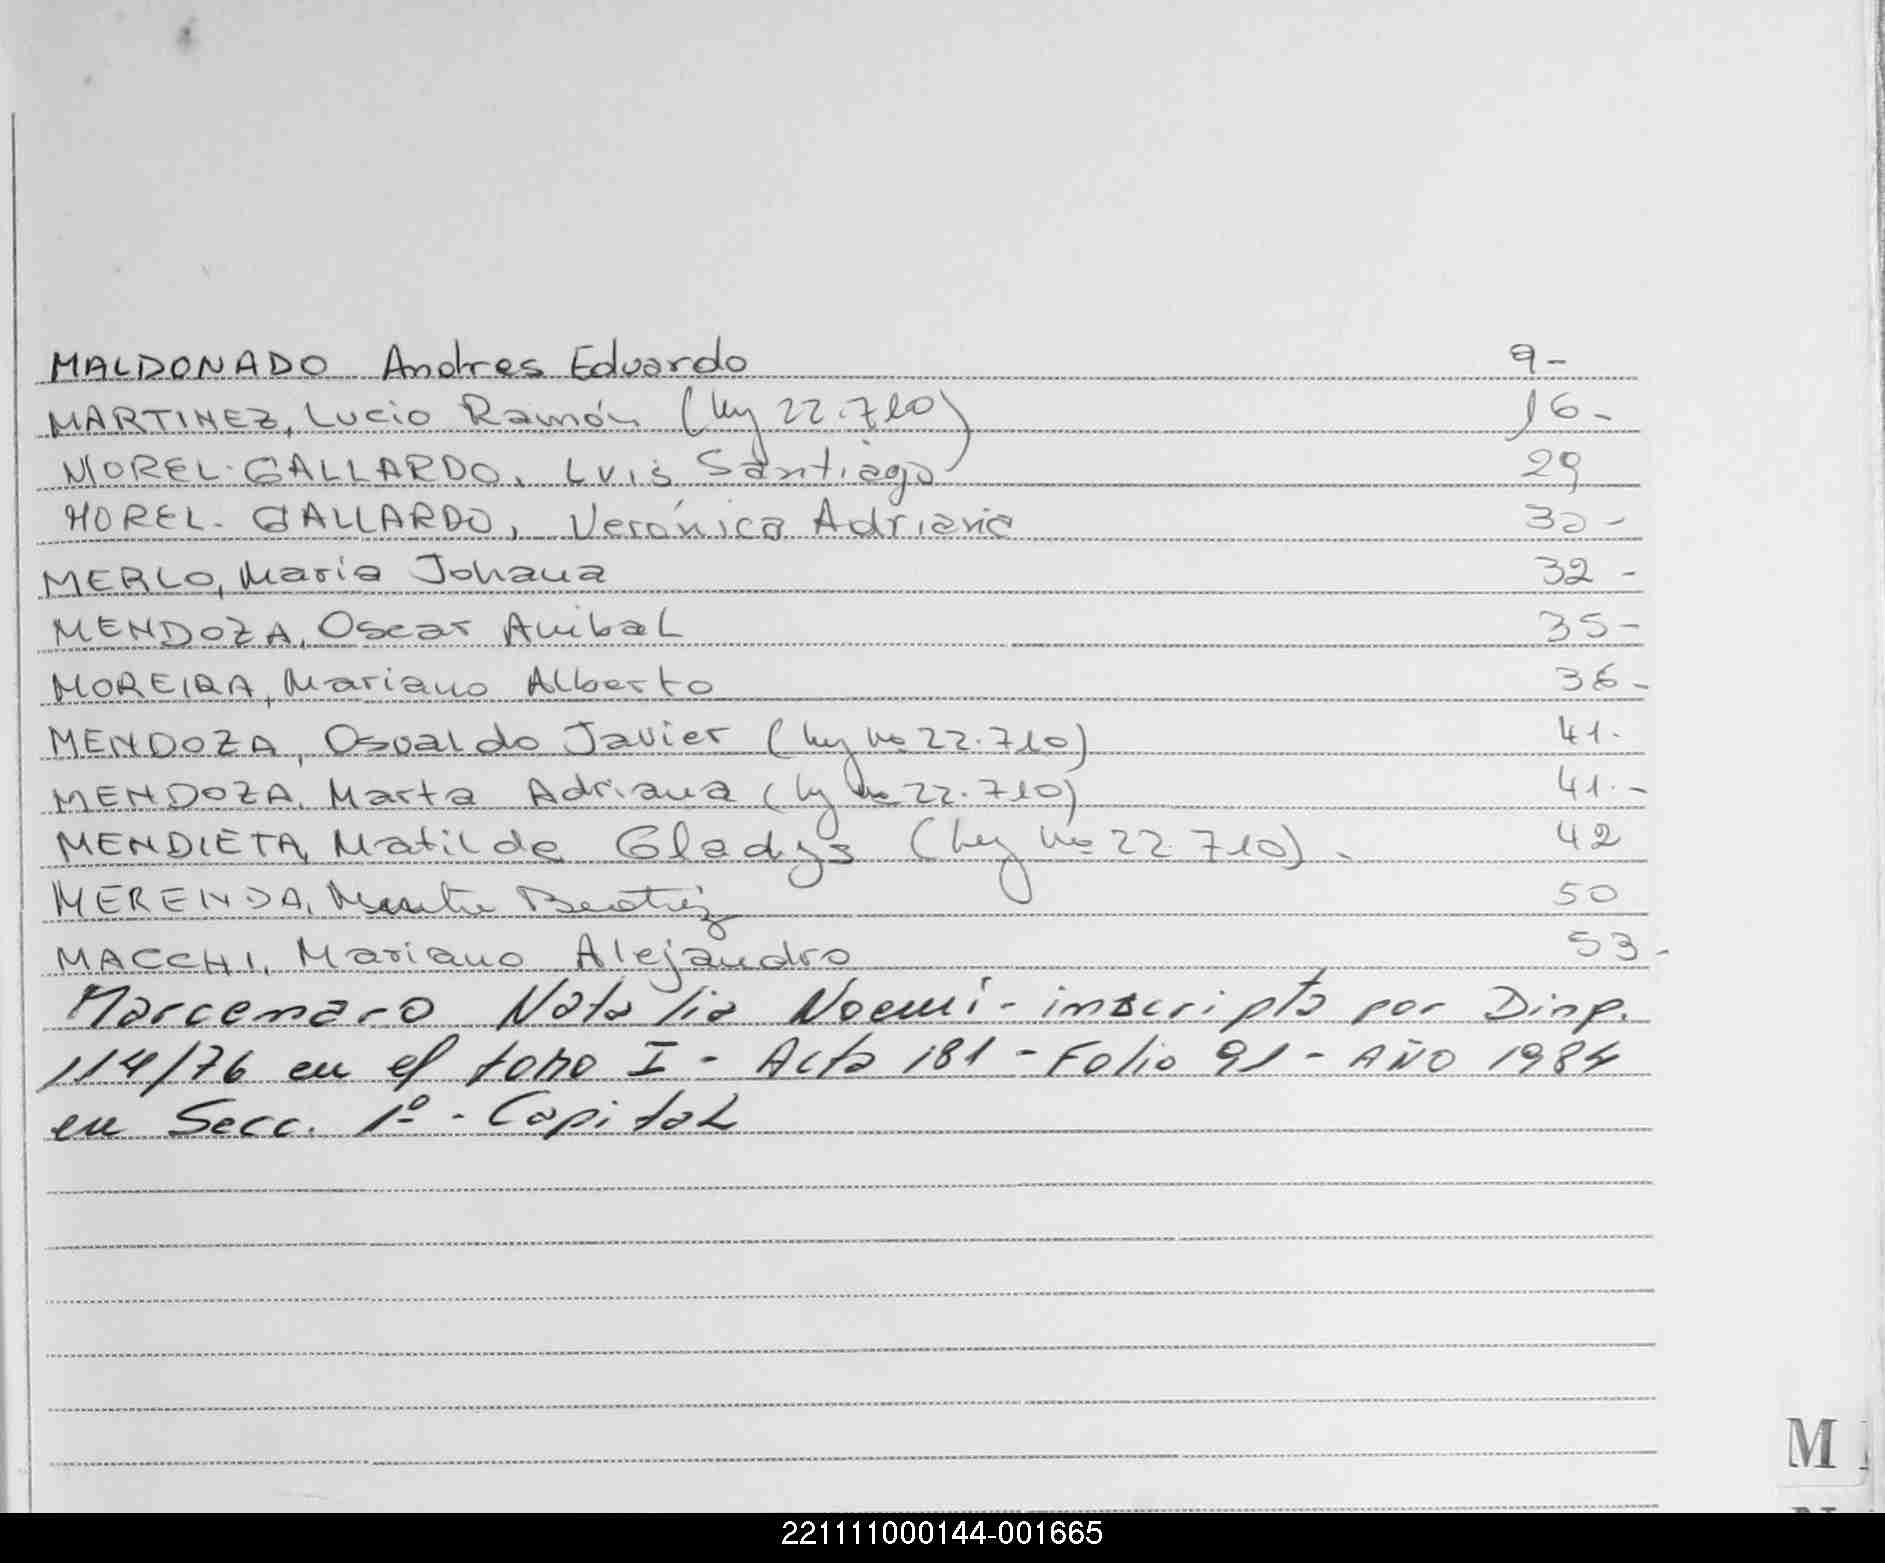 MALDONADO Andres Eduardo 9-
MARTINEZ, Lucio Ramón (ley 22.710) 16-
MOREL-GALLARDO, Luis Santiago 29
MOREL-GALLARDO, Verónica Adriana 30-
MERLO, Maria Johana 32-
MENDOZA, Oscar Anibal 35-
MOREIRA, Mariano Alberto 36-
MENDOZA, Osvaldo Javier (ley no 22.710) 41.
MENDOZA, Marta Adriana (ley no 22.710) 41.-
MENDIETA, Matilde Gladys (ley no 22.710).- 42
MERENDA, Beatriz 50
MACCHI, Mariano Alejandro 53-
Marcenaro Natalia Noemí- inscripta por Disp.
114/76 en el tomo I - Acta 181 - Folio 91 - AÑO 1984
en Secc. 1º - Capital
M
221111000144-001665